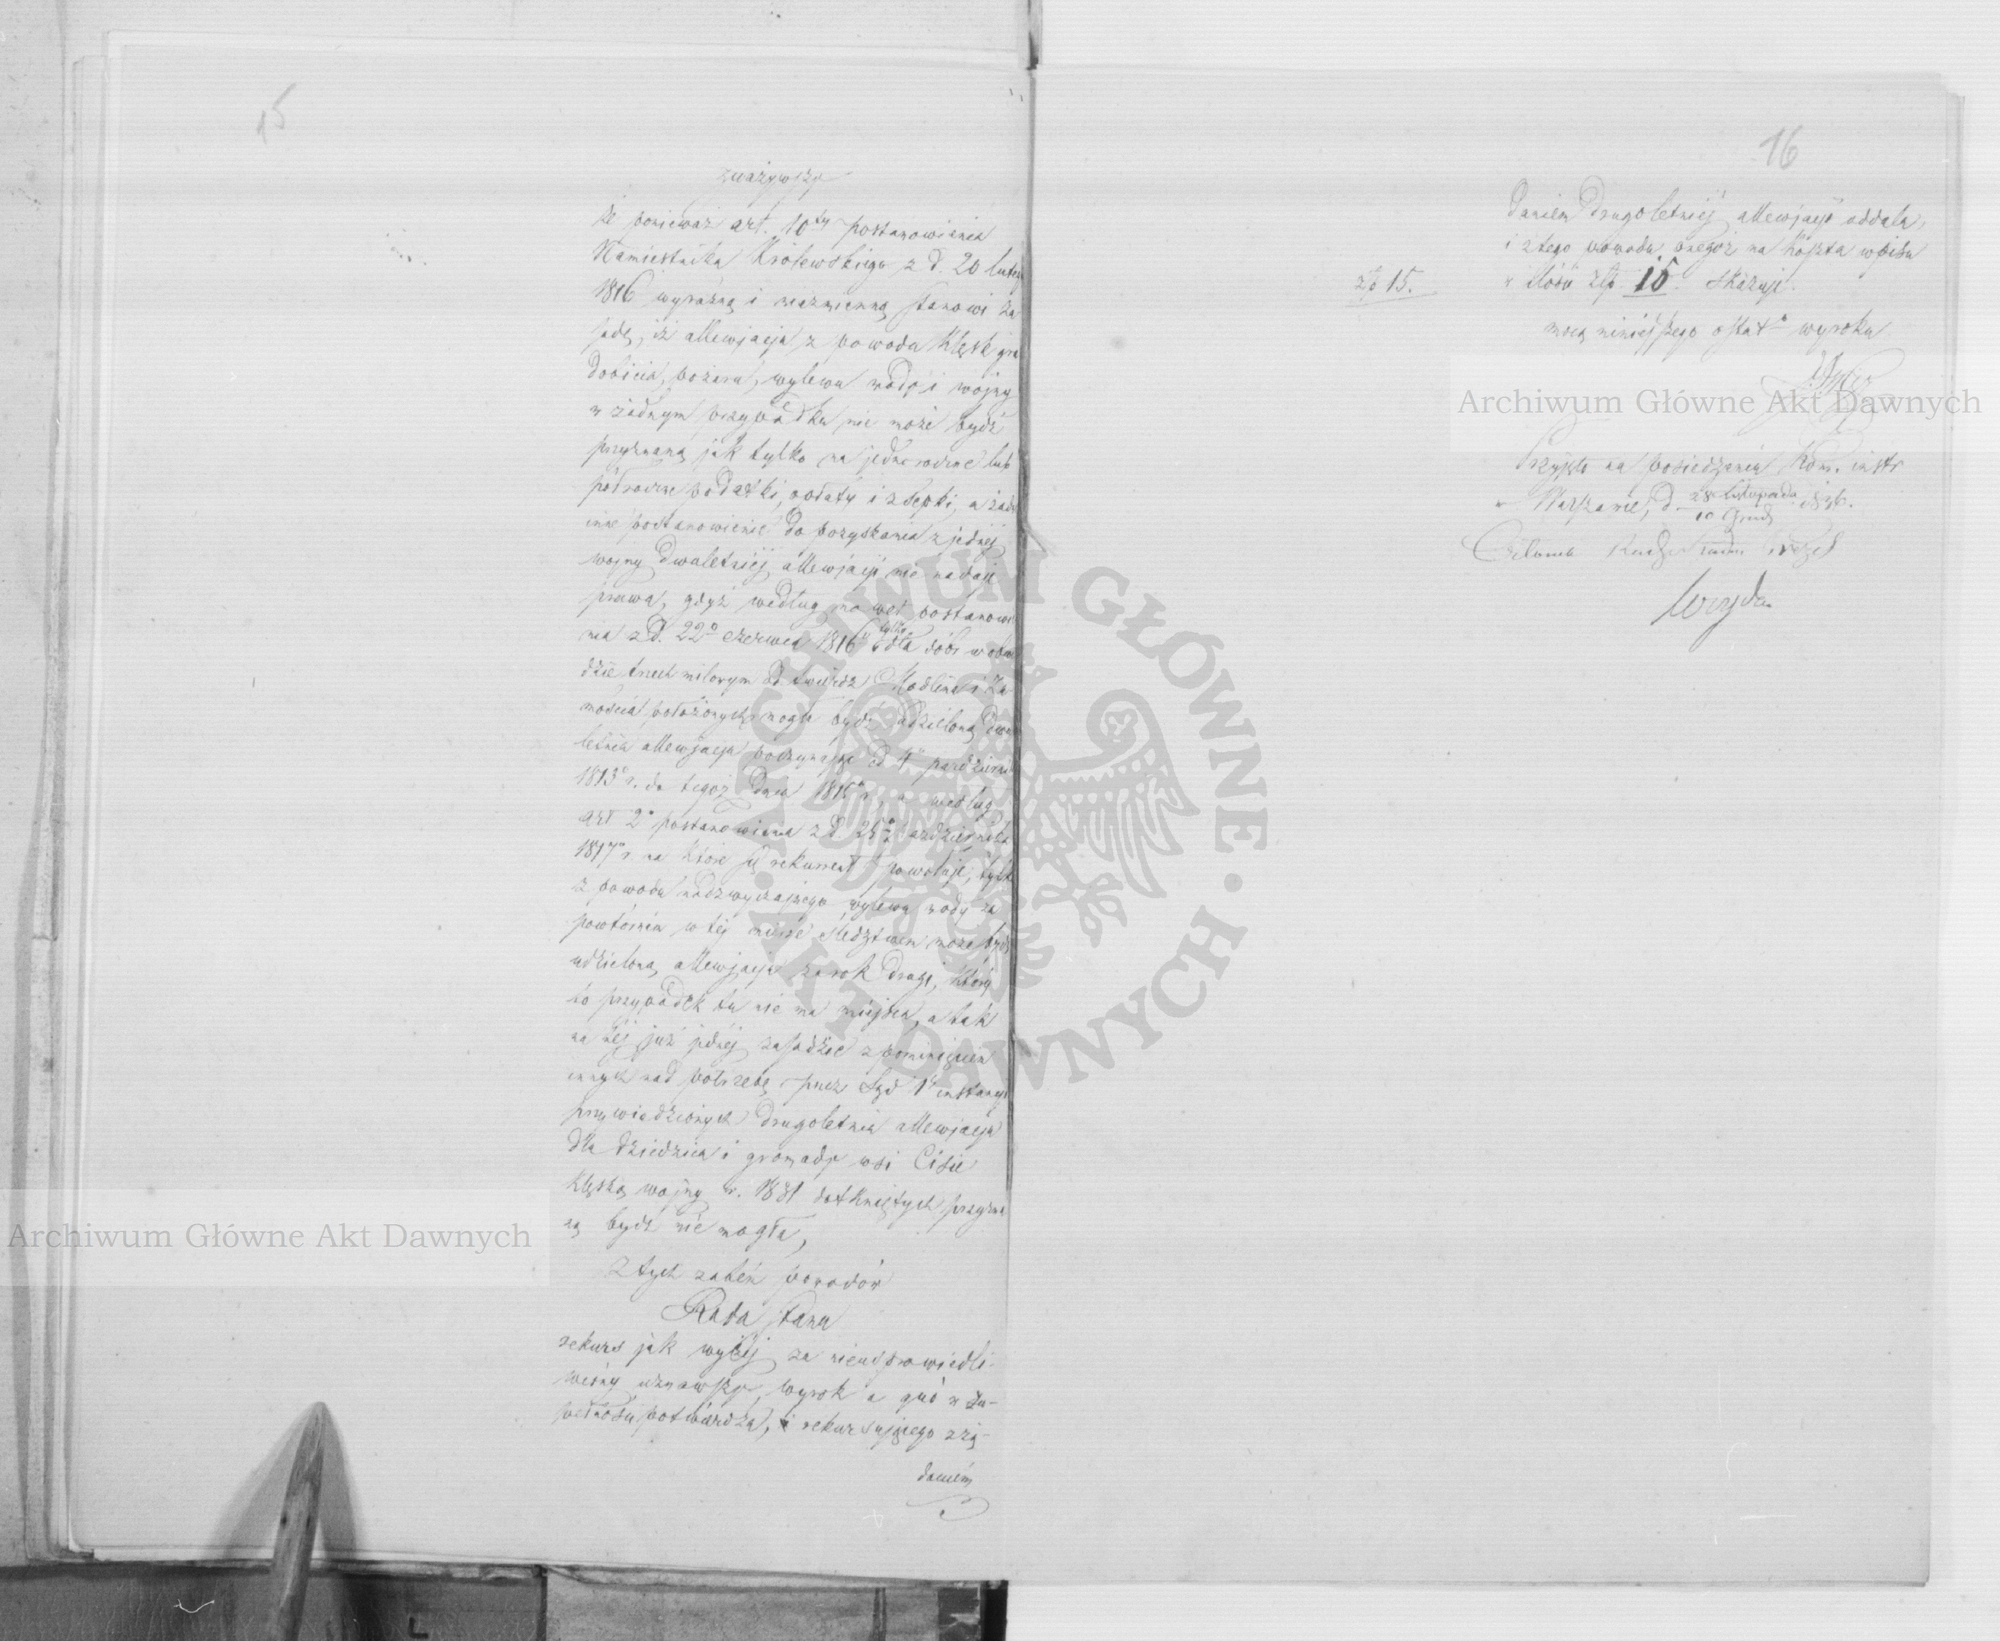 15
zważywszy
że ponieważ art. 10ty postanowienia
Namiestnika Królewskiego z d. 20 lutego
1816 wyraźną i niezmienną stanowi za
sadę, iż allewjacja z powodu klęsk gra
dobicia, pożaru, wylewu wody i wojny
w żadnym przypadku nie może bydź
przyznaną jak tylko na jednoroczne lub
półroczne podatki, opłaty i zsepki, a żad
inne postanowienie do pozyskania z jednej
wojny dwuletniej allewjacji nie nadaje
prawa, gdyż według postanowie
nia z d. 22o czerwca 1816 tylko dla dóbr w obwo
dzie trzech milowym od twierdz Modlina i Za
mościa położonych mogła bydź udzieloną dwu
letnia allewjacja poczynając od 1o październ
1813o r. do tegoż dnia 1815o r., a według
art 2o postanowienia z d. 25o października
1817o r. na które się rekurrent powołuje, tylko
z powodu nadzwyczajnego wylewu wody za
powtórnem w tej mierze śledztwem może bydź
udzieloną allewjacja za rok drugi, który
to przypadek tu nie ma miejsca, a tak
na tej już jednej zasadzie z pominięciem
innych nad potrzebę przez Sąd 1ej instancyi
przywiedzionych drugoletnia allewjacja
dla dziedzica i gromady wsi Cisie
klęską wojny r. 1831 dotkniętych przyzna
ną bydź nie mogła,
z tych zatem powodów
Rada Stanu
rekurs jak wyżej za niesprawiedli-
wiony uznawszy, wyrok a quo w zu-
pełności potwierdza, i rekursującego z żą-
daniem
16
daniem drugoletniej allewjacji oddala,
i z tego powodu onegoż na koszta wpisu
w ilości złp. 15. skazuje.
złp 15.
mocą niniejszego ostato wyroku
Archiwum Główne Akt Dawnych
Przyjęto na posiedzeniu Kom. instr
w Warszawie, d. 28 listopada 1836.
10 Grud
Archiwum Główne Akt Dawnych
ARCHIWUM GŁÓWNE · AKT DAWNYCH ·